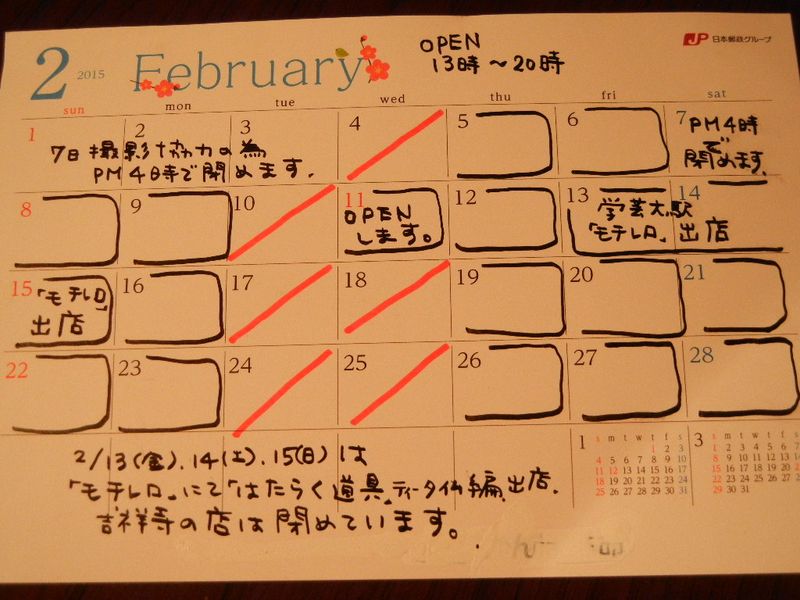 2 2015 February
OPEN
13時～20時
JP 日本郵政グループ
sun mon tue wed thu fri sat
1 2 3 4 5 6 7
7日撮影協力の為
PM4時で閉めます.
PM4時
で
閉めます.
8 9 10 11 12 13 14
OPEN
します。
学芸大駅
「モチレロ」出店
15 16 17 18 19 20 21
「モチレロ」
出店
22 23 24 25 26 27 28
2/13(金).14(土).15(日)は
「モチレロ」にて「はたらく道具」ティータイム編出店.
吉祥寺の店は閉めています。
1 s m t w t f s
1 2 3
4 5 6 7 8 9 10
11 12 13 14 15 16 17
18 19 20 21 22 23 24
25 26 27 28 29 30 31
3 s m t w t f
1 2 3 4 5 6
8 9 10 11 12 13
15 16 17 18 19 20
22 23 24 25 26 27
29 30 31